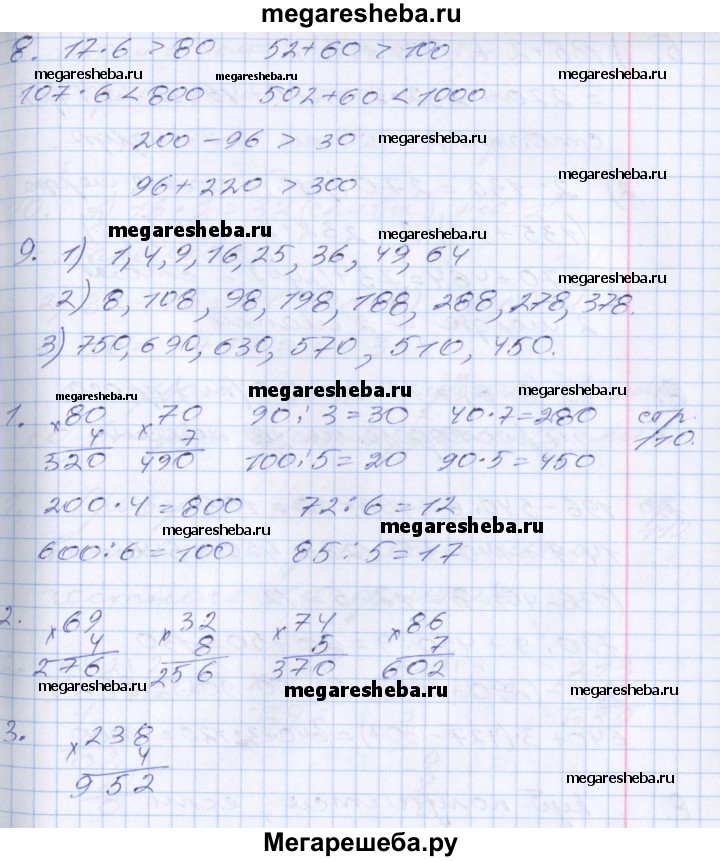 megaresheba.ru
8. 17·6 > 80 52+60 > 100
megaresheba.ru megaresheba.ru megaresheba.ru
107·6 < 800 502+60 < 1000
200-96 > 30 megaresheba.ru
96+220 > 300
megaresheba.ru
9. 1) 1, 4, 9, 16, 25, 36, 49, 64
megaresheba.ru
2) 8, 108, 98, 198, 188, 288, 278, 378.
3) 750, 690, 630, 570, 510, 450.
megaresheba.ru megaresheba.ru megaresheba.ru
1. ×80 ×70 90:3=30 40·7=280 стр.
4 7 100:5=20 90·5=450 110.
320 490
200·4=800 72:6=12
megaresheba.ru megaresheba.ru
600:6=100 85:5=17
2. ×69 ×32 ×74 ×86
4 8 5 7
276 256 370 602
megaresheba.ru megaresheba.ru megaresheba.ru
3. ×238
4
952
megaresheba.ru
Мегарешеба.ру